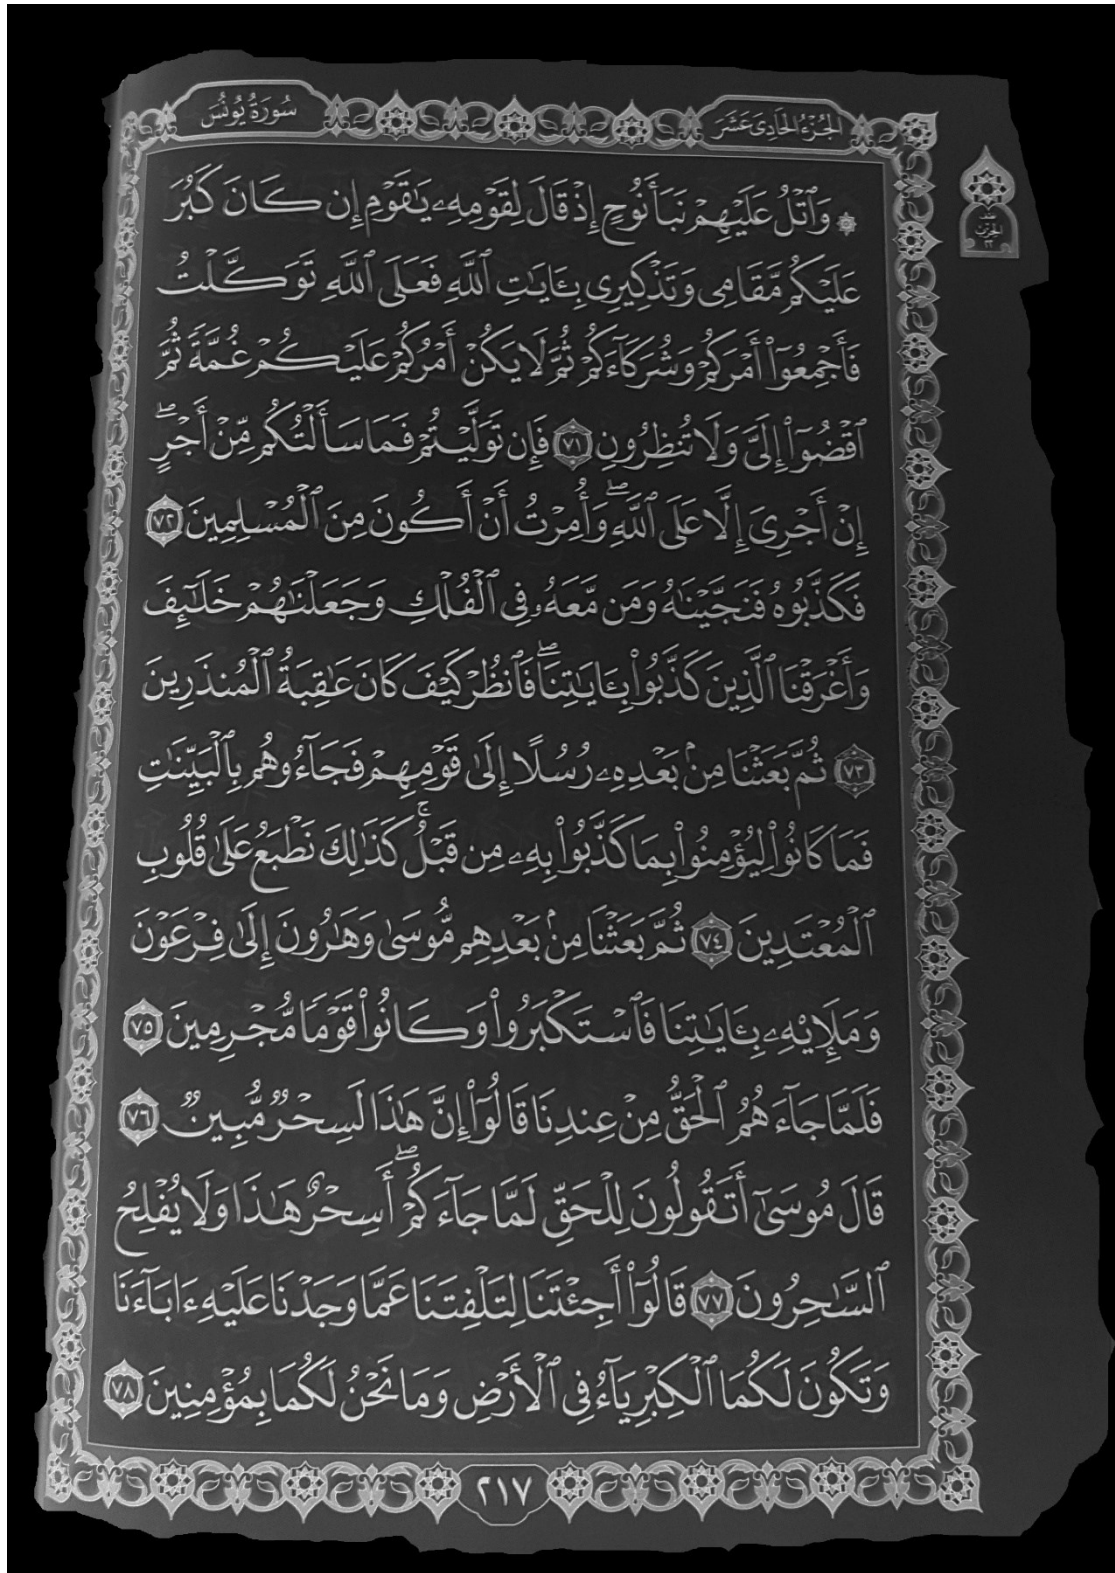 سُورَةُ يُونُسَ
الجُزْءُ الحَادِي عَشَرَ
۞ وَٱتْلُ عَلَيْهِمْ نَبَأَ نُوحٍ إِذْ قَالَ لِقَوْمِهِۦ يَٰقَوْمِ إِن كَانَ كَبُرَ
عَلَيْكُم مَّقَامِى وَتَذْكِيرِى بِـَٔايَٰتِ ٱللَّهِ فَعَلَى ٱللَّهِ تَوَكَّلْتُ
فَأَجْمِعُوٓا۟ أَمْرَكُمْ وَشُرَكَآءَكُمْ ثُمَّ لَا يَكُنْ أَمْرُكُمْ عَلَيْكُمْ غُمَّةً ثُمَّ
ٱقْضُوٓا۟ إِلَىَّ وَلَا تُنظِرُونِ ٧١ فَإِن تَوَلَّيْتُمْ فَمَا سَأَلْتُكُم مِّنْ أَجْرٍ ۖ
إِنْ أَجْرِىَ إِلَّا عَلَى ٱللَّهِ ۖ وَأُمِرْتُ أَنْ أَكُونَ مِنَ ٱلْمُسْلِمِينَ ٧٢
فَكَذَّبُوهُ فَنَجَّيْنَٰهُ وَمَن مَّعَهُۥ فِى ٱلْفُلْكِ وَجَعَلْنَٰهُمْ خَلَٰٓئِفَ
وَأَغْرَقْنَا ٱلَّذِينَ كَذَّبُوا۟ بِـَٔايَٰتِنَا ۖ فَٱنظُرْ كَيْفَ كَانَ عَٰقِبَةُ ٱلْمُنذَرِينَ
٧٣ ثُمَّ بَعَثْنَا مِنۢ بَعْدِهِۦ رُسُلًا إِلَىٰ قَوْمِهِمْ فَجَآءُوهُم بِٱلْبَيِّنَٰتِ
فَمَا كَانُوا۟ لِيُؤْمِنُوا۟ بِمَا كَذَّبُوا۟ بِهِۦ مِن قَبْلُ ۚ كَذَٰلِكَ نَطْبَعُ عَلَىٰ قُلُوبِ
ٱلْمُعْتَدِينَ ٧٤ ثُمَّ بَعَثْنَا مِنۢ بَعْدِهِم مُّوسَىٰ وَهَٰرُونَ إِلَىٰ فِرْعَوْنَ
وَمَلَإِي۟هِۦ بِـَٔايَٰتِنَا فَٱسْتَكْبَرُوا۟ وَكَانُوا۟ قَوْمًا مُّجْرِمِينَ ٧٥
فَلَمَّا جَآءَهُمُ ٱلْحَقُّ مِنْ عِندِنَا قَالُوٓا۟ إِنَّ هَٰذَا لَسِحْرٌ مُّبِينٌ ٧٦
قَالَ مُوسَىٰٓ أَتَقُولُونَ لِلْحَقِّ لَمَّا جَآءَكُمْ ۖ أَسِحْرٌ هَٰذَا وَلَا يُفْلِحُ
ٱلسَّٰحِرُونَ ٧٧ قَالُوٓا۟ أَجِئْتَنَا لِتَلْفِتَنَا عَمَّا وَجَدْنَا عَلَيْهِ ءَابَآءَنَا
وَتَكُونَ لَكُمَا ٱلْكِبْرِيَآءُ فِى ٱلْأَرْضِ وَمَا نَحْنُ لَكُمَا بِمُؤْمِنِينَ ٧٨
٢١٧